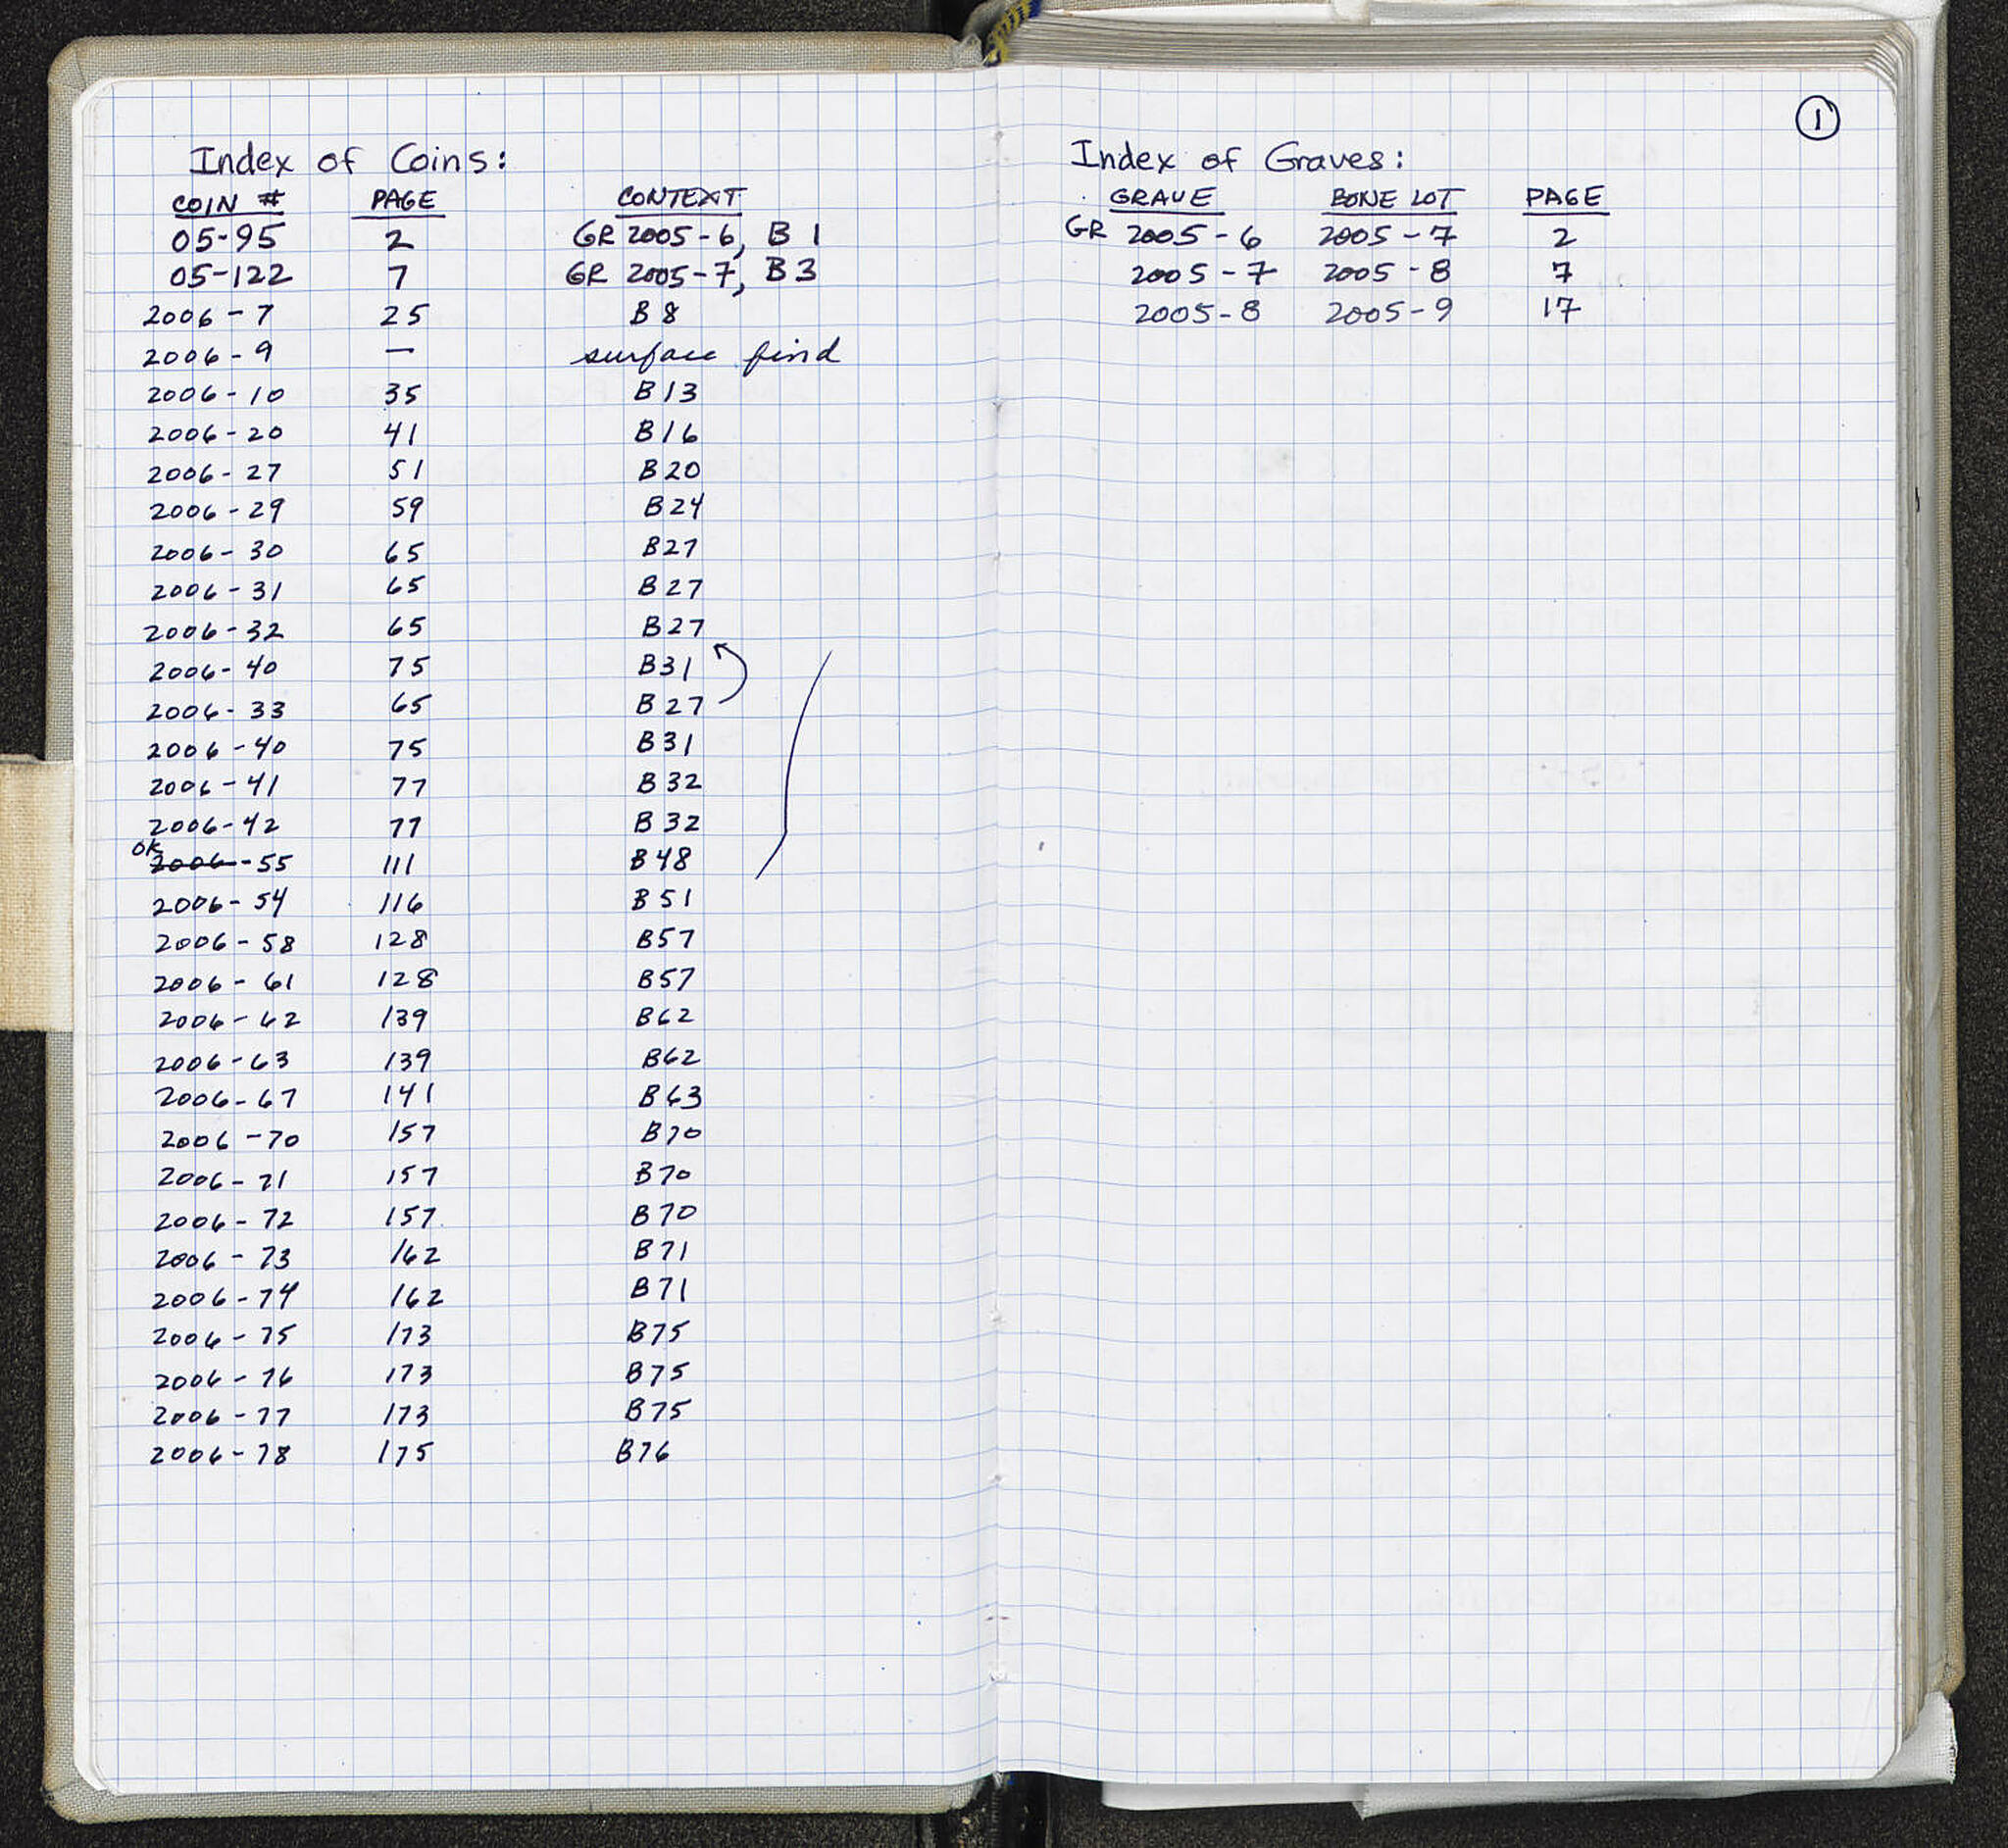 Index of Coins:
COIN # PAGE CONTEXT
05-95 2 GR 2005-6, B 1
05-122 7 GR 2005-7, B 3
2006-7 25 B 8
2006-9 — surface find
2006-10 35 B13
2006-20 41 B16
2006-27 51 B20
2006-29 59 B24
2006-30 65 B27
2006-31 65 B27
2006-32 65 B27
2006-40 75 B31
2006-33 65 B27
2006-40 75 B31
2006-41 77 B32
2006-42 77 B32
OK
2006-55 111 B48
2006-54 116 B51
2006-58 128 B57
2006-61 128 B57
2006-62 139 B62
2006-63 139 B62
2006-67 141 B63
2006-70 157 B70
2006-71 157 B70
2006-72 157 B70
2006-73 162 B71
2006-74 162 B71
2006-75 173 B75
2006-76 173 B75
2006-77 173 B75
2006-78 175 B76
1
Index of Graves:
GRAVE BONE LOT PAGE
GR 2005-6 2005-7 2
2005-7 2005-8 7
2005-8 2005-9 17